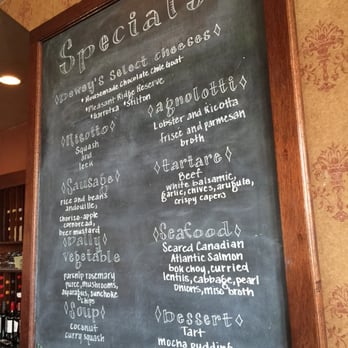 Specials
Dewey's Select Cheeses
*Housemade Chocolate Chile Goat
*Pleasant Ridge Reserve
*Garrotxa *Stilton
Risotto
Squash
and
leek
Sausage
rice and beans
andouille,
chorizo-apple
cornbread,
beer mustard
Daily
Vegetable
parsnip rosemary
puree, mushrooms,
asparagus, sunchoke
chips
Soup
coconut
curry squash
Agnolotti
Lobster and Ricotta
frisee and parmesan
broth
tartare
Beef
white balsamic,
garlic, chives, arugula,
crispy capers
Seafood
Seared Canadian
Atlantic Salmon
bok choy, curried
lentils, cabbage, pearl
onions, miso broth
Dessert
Tart
mocha pudding